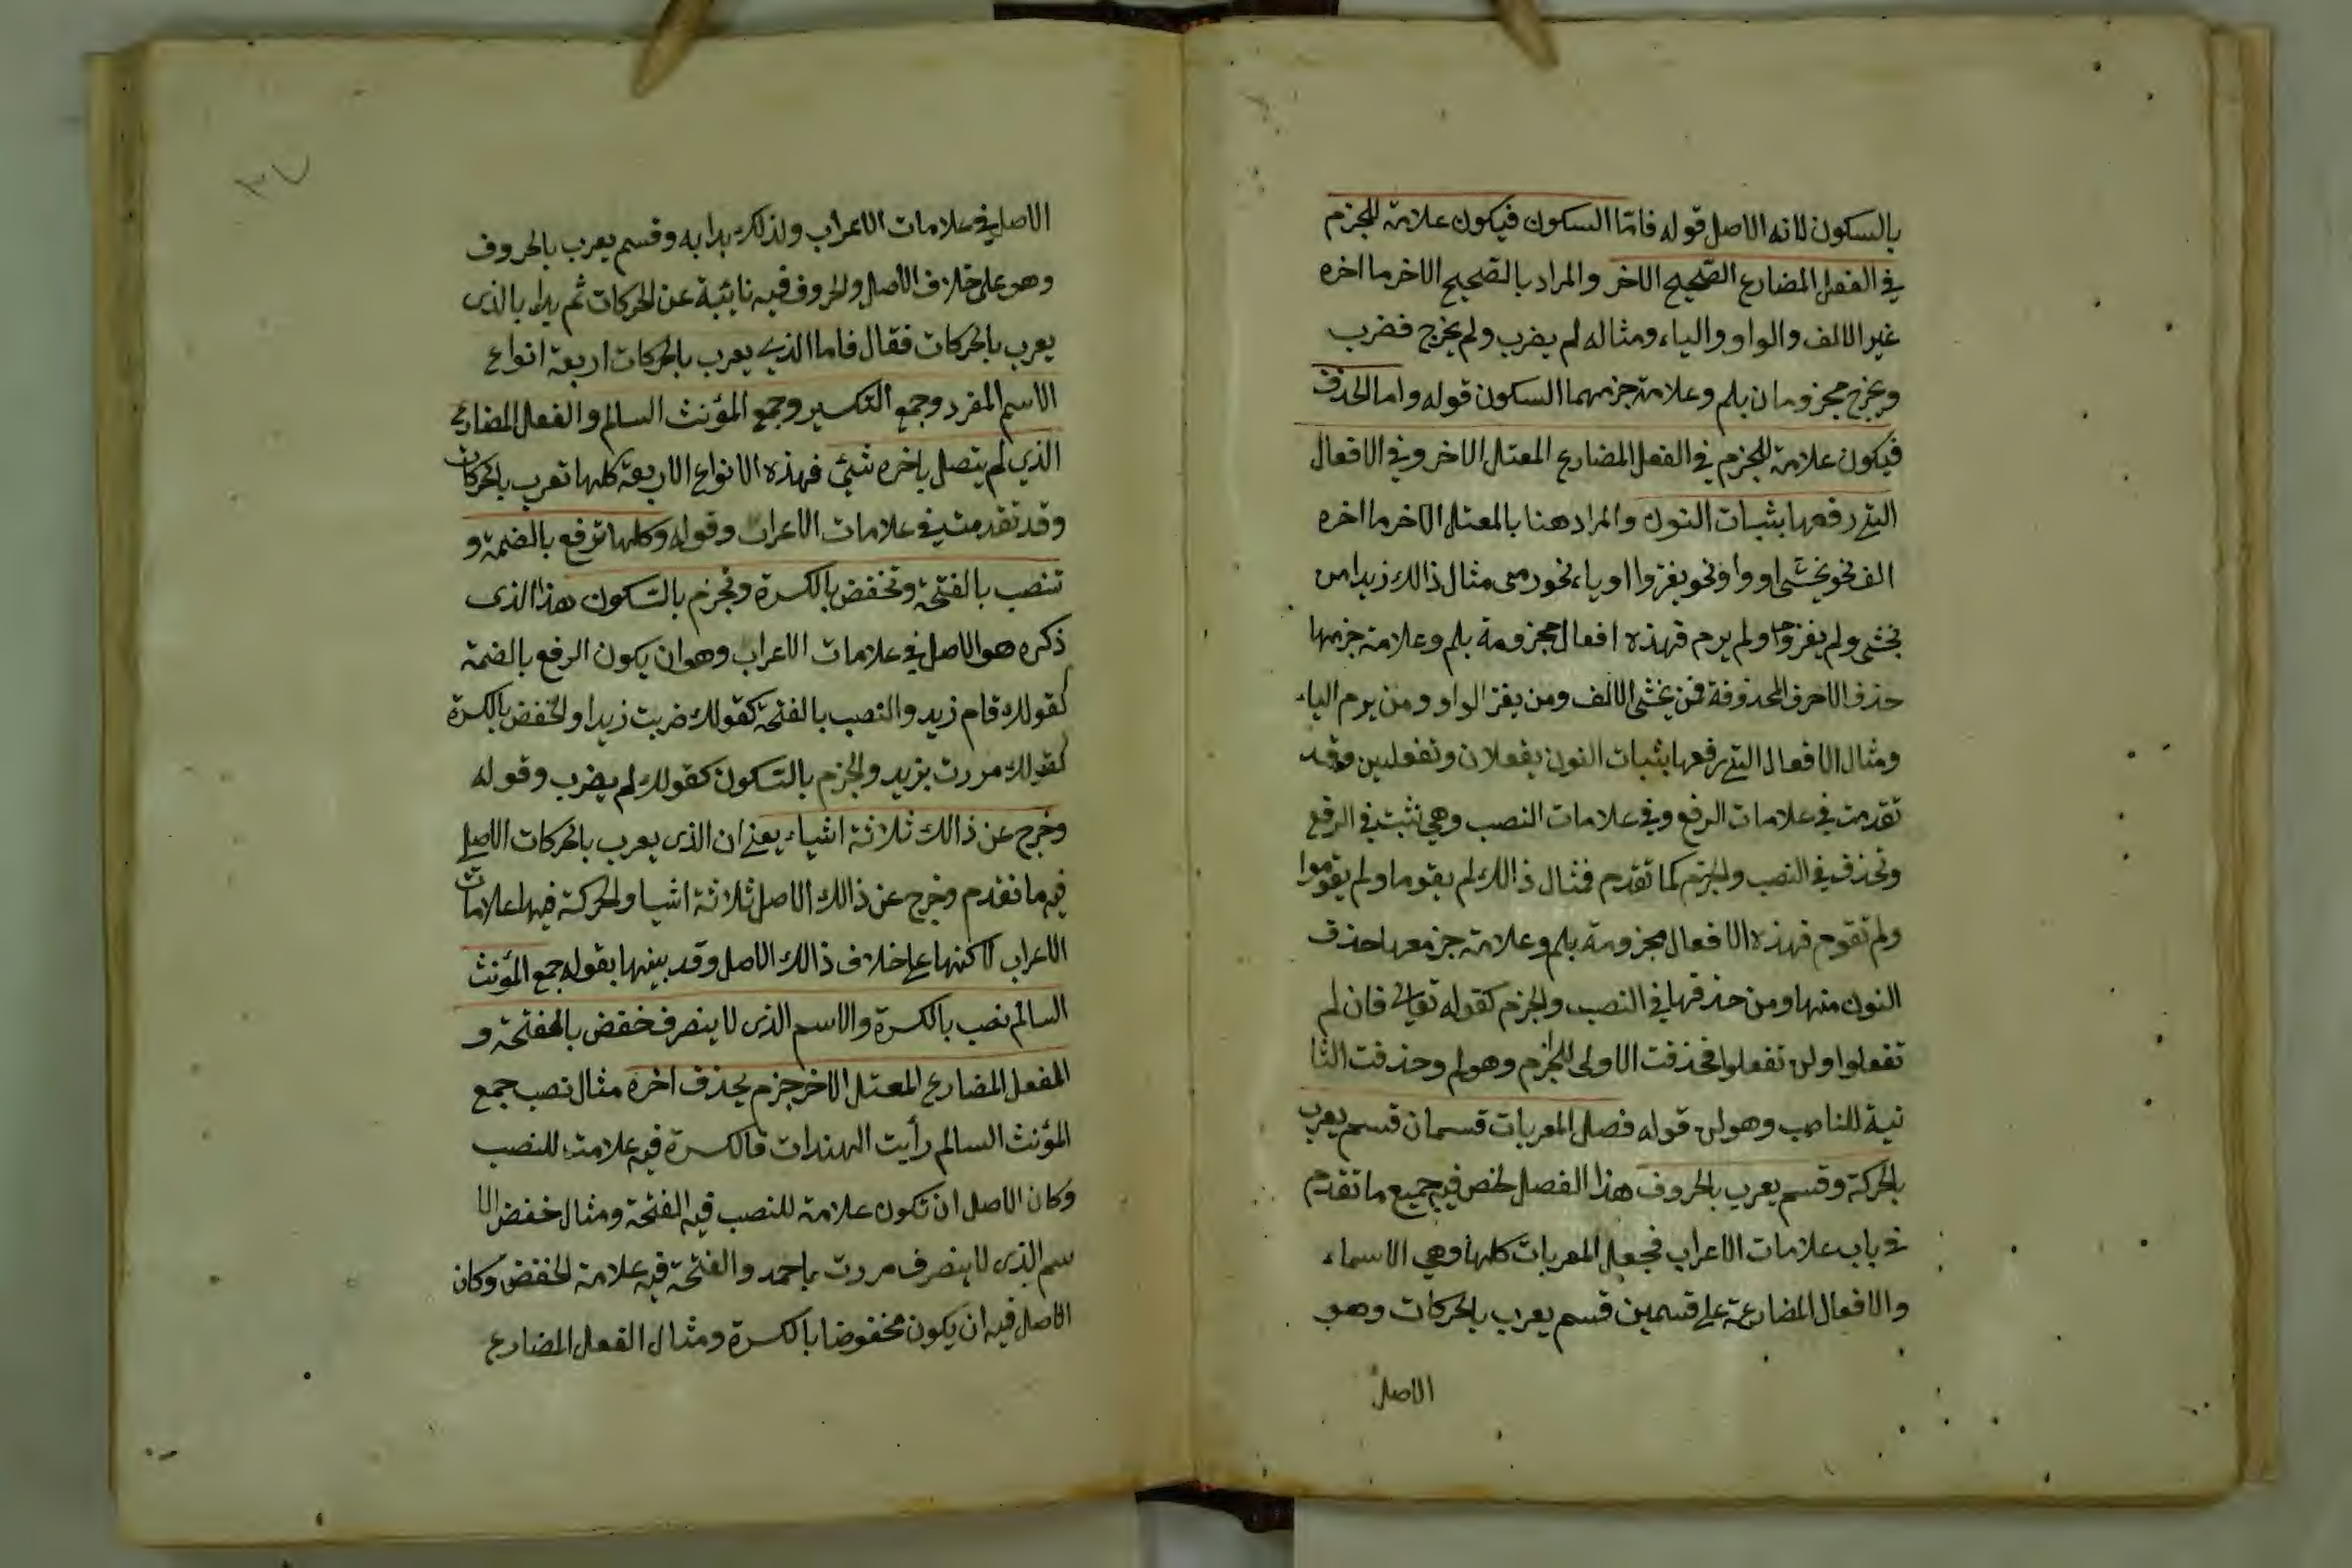 بالسكون لانه الاصل قوله فاما السكون فيكون علامة للجزم
في الفعل المضارع الصحيح الاخر والمراد بالصحيح الاخر ما اخره
غير الالف والواو والياء ومثاله لم يضرب ولم يخرج فضرب
ويخرج مجزومان بلم وعلامة جزمهما السكون قوله واما الحذف
فيكون علامة للجزم في الفعل المضارع المعتل الاخر وفي الافعال
التي رفعها بثبات النون والمراد هنا بالمعتل الاخر ما اخره
الف نحو يخشى او واو نحو يغزوا او ياء نحو رمى مثال ذالك زيدا من
يخشى ولم يغزوا ولم يرم فهذه افعال مجزومة بلم وعلامة جزمها
حذف الاحرف المحذوفة فمن يخشى الالف ومن يغز الواو ومن يرم الياء
ومثال الافعال التي رفعها بثبات النون يفعلان وتفعلين وقد
تقدمت في علامات الرفع وفي علامات النصب وهي تثبت في الرفع
وتحذف في النصب والجزم كما تقدم فمثال ذالك لم يقوما ولم يقوموا
ولم تقوم فهذه الافعال مجزومة بلم وعلامة جزمعها حذف
النون منها ومن حذفها في النصب والجزم كقوله تعالى فان لم
تفعلوا ولن تفعلوا فحذفت الاولى للجزم وهو لم وحذفت الثا
نية للناصب وهو لن قوله فصل المعربات قسمان قسم يعرب
بالحركة وقسم يعرب بالحروف هذا الفصل لخص فيه جميع ما تقدم
في باب علامات الاعراب فجعل المعربات كلها وهي الاسماء
والافعال المضارعة على قسمين قسم يعرب بالحركات وهو
الاصل
٣٧
الاصل في علامات الاعراب ولذلك بدا به وقسم يعرب بالحروف
وهو على خلاف الاصل والحروف فيه نايئبة عن الحركات ثم بدا بالذى
يعرب بالحركات فقال فاما الذي يعرب بالحركات اربعة انواع
الاسم المفرد وجمع التكسير وجمع المؤنث السالم والفعل المضارع
الذي لم يتصل باخره شئ فهذه الانواع الاربعة كلها تعرب بالحركات
وقد تقدمت في علامات الاعراب وقوله وكلها ترفع بالضمة و
تنصب بالفتحة وتخفض بالكسرة وتجزم بالسكون هذا الذى
ذكره هو الاصل في علامات الاعراب وهو ان يكون الرفع بالضمة
كقولك قام زيد والنصب بالفتحة كقولك ضربت زيدا والخفض بالكسرة
كقولك مررت بزيد والجزم بالسكون كقولك لم يضرب وقوله
وخرج عن ذالك ثلاثة اشياء يعني ان الذى يعرب بالحركات الاصل
فيه ما تقدم وخرج عن ذالك الاصل ثلاثة اشيا والحركة فيها علامات
الاعراب لاكنها على خلاف ذالك الاصل وقد بينها بقوله جمع المؤنث
السالم نصب بالكسرة والاسم الذى لا ينصرف خفض بالفتحة و
الفعل المضارع المعتل الاخر جزم بحذف اخره مثال نصب جمع
المؤنث السالم رأيت الهندات فالكسرة فيه علامت للنصب
وكان الاصل ان تكون علامة للنصب فيه الفتحة ومثال خفض الا
سم الذى لا ينصرف مررت باحمد والفتحة فيه علامة الخفض وكان
الاصل فيه ان يكون مخفوضا بالكسرة ومثال الفعل المضارع